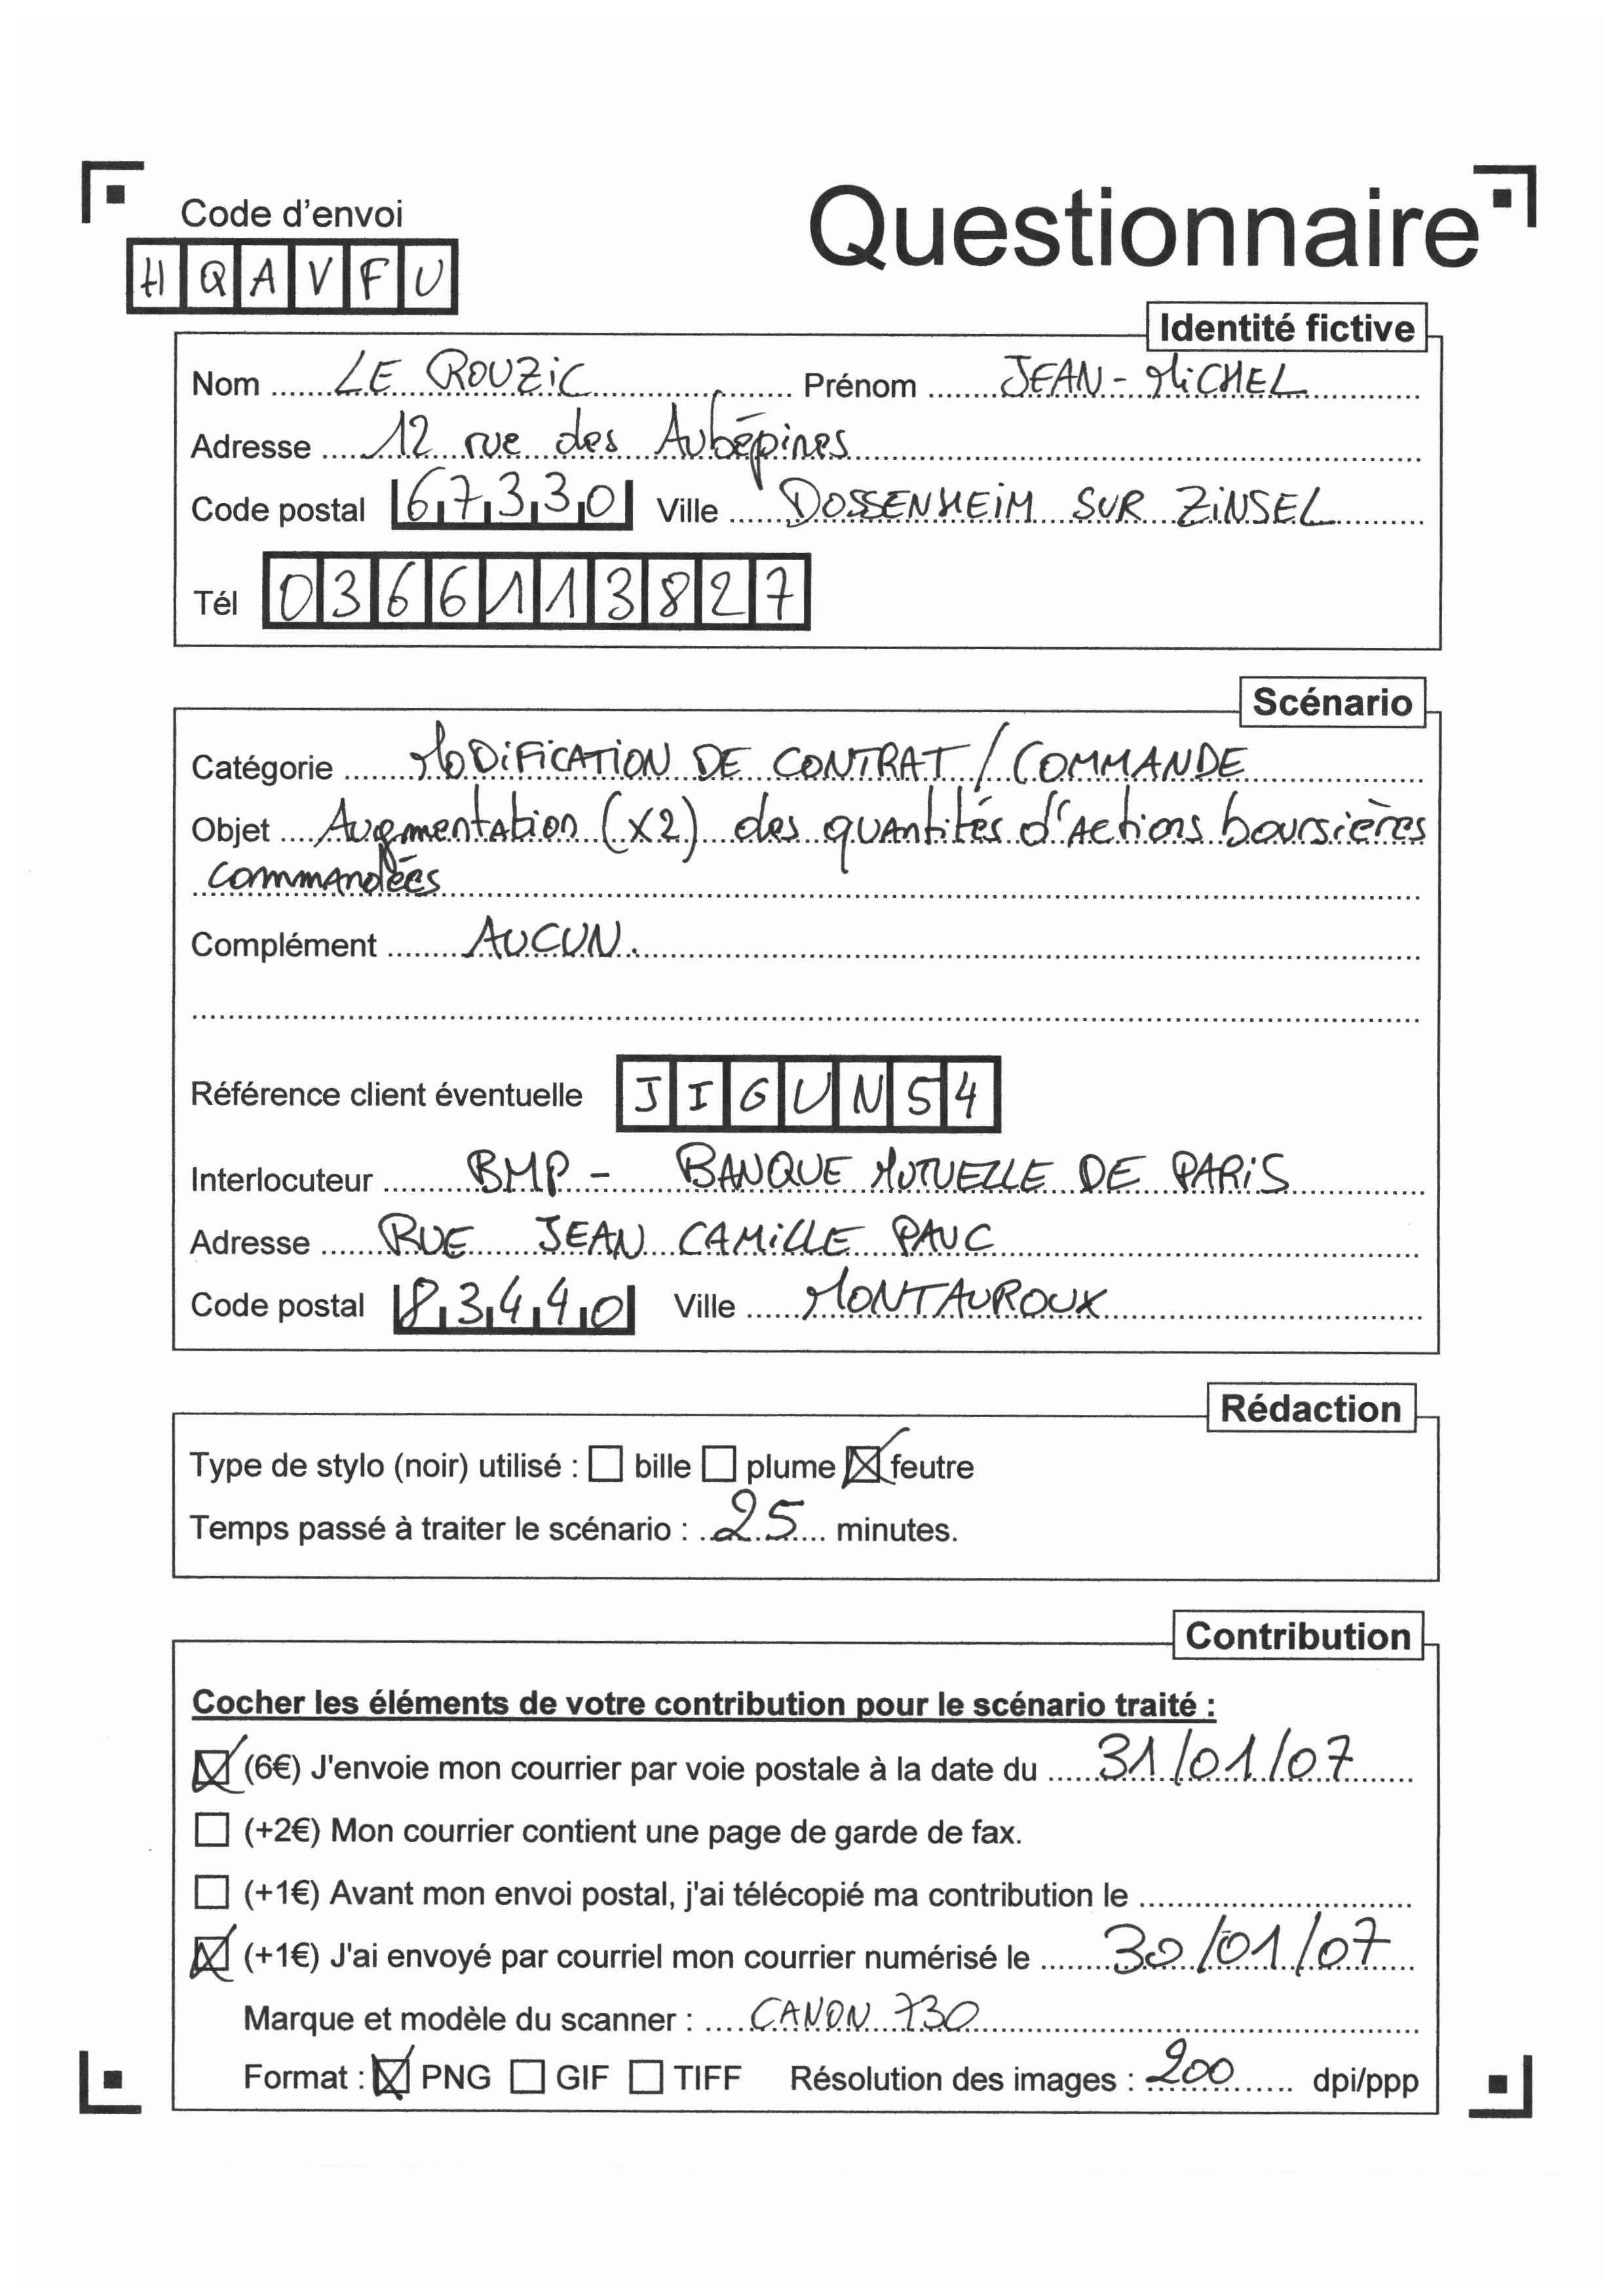 Code d'envoi
Questionnaire
HQAVFU
Identité fictive
Nom ...... LE ROUZIC ...... Prénom ...... JEAN-MICHEL ......
Adresse ...... 12 rue des Aubépines ......
Code postal 67330 Ville ...... DOSSENHEIM SUR ZINSEL ......
Tél 0366113827
Scénario
Catégorie ...... MODIFICATION DE CONTRAT / COMMANDE ......
Objet ...... Augmentation (X2) des quantités d'actions boursières
commandées ......
Complément ...... AUCUN. ......
Référence client éventuelle JIGUN54
Interlocuteur ...... BMP - BANQUE MUTUELLE DE PARIS ......
Adresse ...... RUE JEAN CAMILLE PAUC ......
Code postal 83440 Ville ...... MONTAUROUX ......
Rédaction
Type de stylo (noir) utilisé : ☐ bille ☐ plume ☒ feutre
Temps passé à traiter le scénario : .. 25 ... minutes.
Contribution
Cocher les éléments de votre contribution pour le scénario traité :
☒ (6€) J'envoie mon courrier par voie postale à la date du ...... 31/01/07 ......
☐ (+2€) Mon courrier contient une page de garde de fax.
☐ (+1€) Avant mon envoi postal, j'ai télécopié ma contribution le ......
☒ (+1€) J'ai envoyé par courriel mon courrier numérisé le ...... 30/01/07 ......
Marque et modèle du scanner : .... CANON 730 ......
Format : ☒ PNG ☐ GIF ☐ TIFF Résolution des images : 200 ...... dpi/ppp